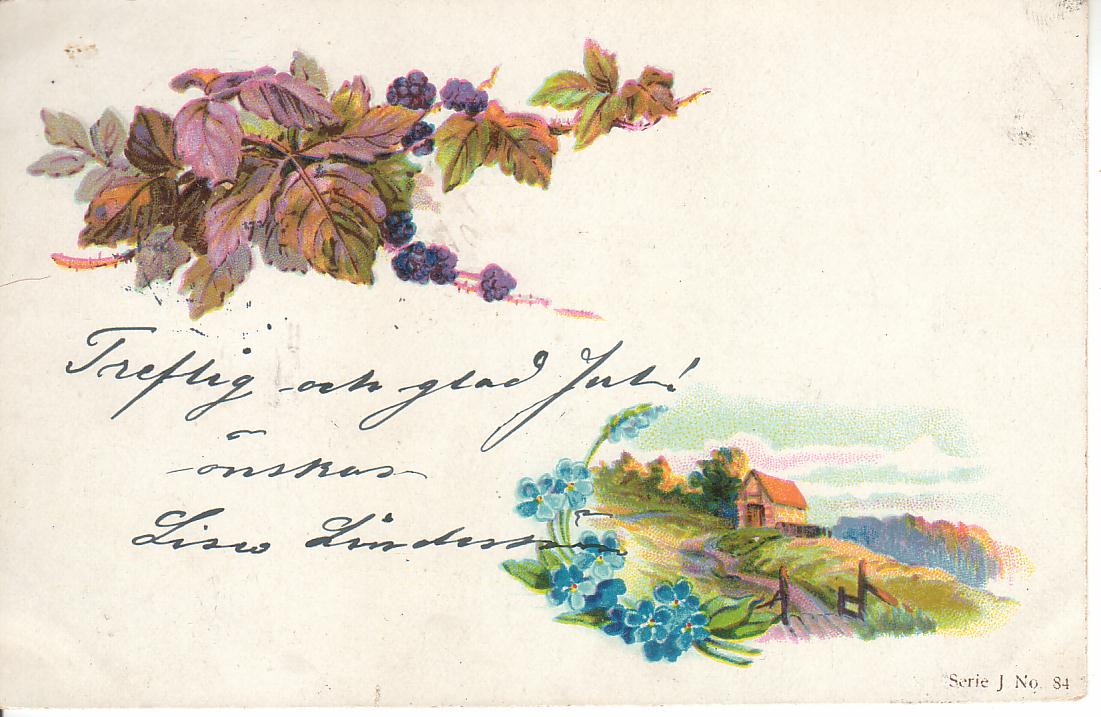 Treflig och glad Jul!
önskas
Lisa
Serie J No. 84